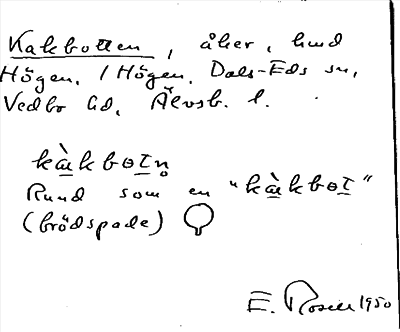 Kakbotten, åker, hmd
Högen, / Högen, Dals-Eds sn,
Vedbo hd, Älvsb. l.
kàkbotn̥
Rund som en "kàkbot"
(brödspade)
E. Rosell 1950